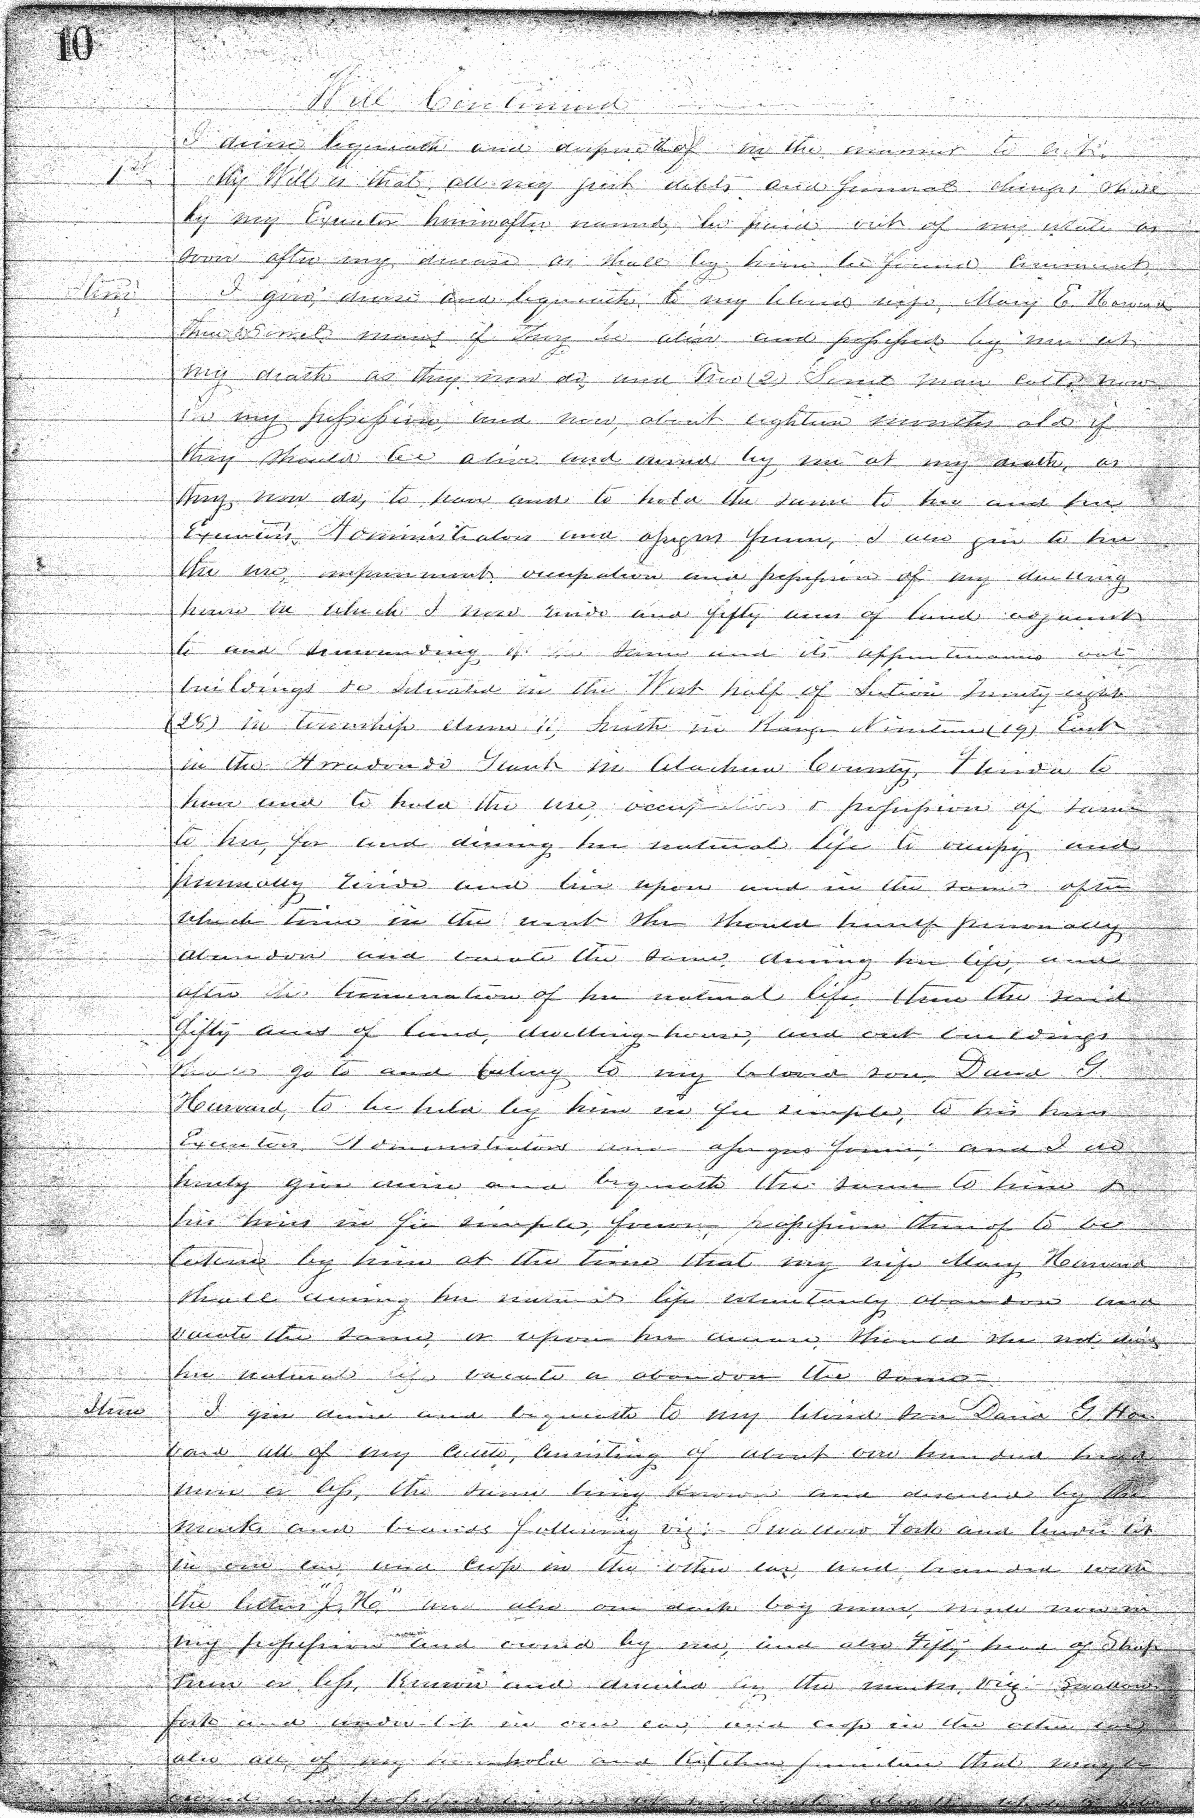 10
Will Continued
I devise bequeath and dispose thereof in the manner to wit:
1st My Will is that all my just debts and funeral charges shall
by my Executor hereinafter named, be paid out of my estate as
soon after my decease as shall by him be found convenient
Item I give, devise and bequeath to my beloved wife, Mary E Howard
three Sorrel mares if they be alive and possessed by me at
my death as they now do, and Two (2) Sorrel mare colts now
in my possession, and now, about eighteen months old if
they should be alive and owned by me at my death, as
they now do, to have and to hold the same to her and her
Executors, Administrators and assigns forever, I also give to her
the use, enjoyment, occupation and possession of my dwelling
house in which I now reside and fifty acres of land adjacent
to and surrounding of the same and its appurtenances out
buildings &c situated in the West half of Section Twenty eight
(28) in township eleven 11, South in Range Nineteen (19) East
in the Arredondo Grant in Alachua County, Florida to
have and to hold the use, occupation & possession of same
to her, for and during her natural life to occupy and
personally reside and live upon and in the same after
which time in the event she should herself personally
abandon and vacate the same during her life, and
after the termination of her natural life, then the said
fifty acres of land, dwelling-house, and out buildings
shall go to and belong to my beloved son, David G.
Howard, to be held by him in fee simple, to his heirs
Executors Administrators and assigns forever; and I do
hereby give devise and bequeath the same to him &
his heirs in fee simple, forever, possession thereof to be
taken by him at the time that my wife Mary Howard
shall during her natural life voluntarily abandon and
vacate the same, or upon her decease, should she not during
her natural life vacate or abandon the same—
Item I give devise and bequeath to my beloved son David G How-
ard all of my cattle, consisting of about one hundred head
more or less, the same being known and described by the
marks and brands following viz: Swallow Fork and under bit
in one ear, and crop in the other ear, and branded with
the letters "J. H." and also one dark bay mare mule now in
my possession and owned by me, and also Fifty head of Sheep
more or less, known and described by the marks, viz: Swallow
fork and under bit in one ear, and crop in the other ear
also all of my household and Kitchen furniture that may be
owned and possessed by me at my death also the